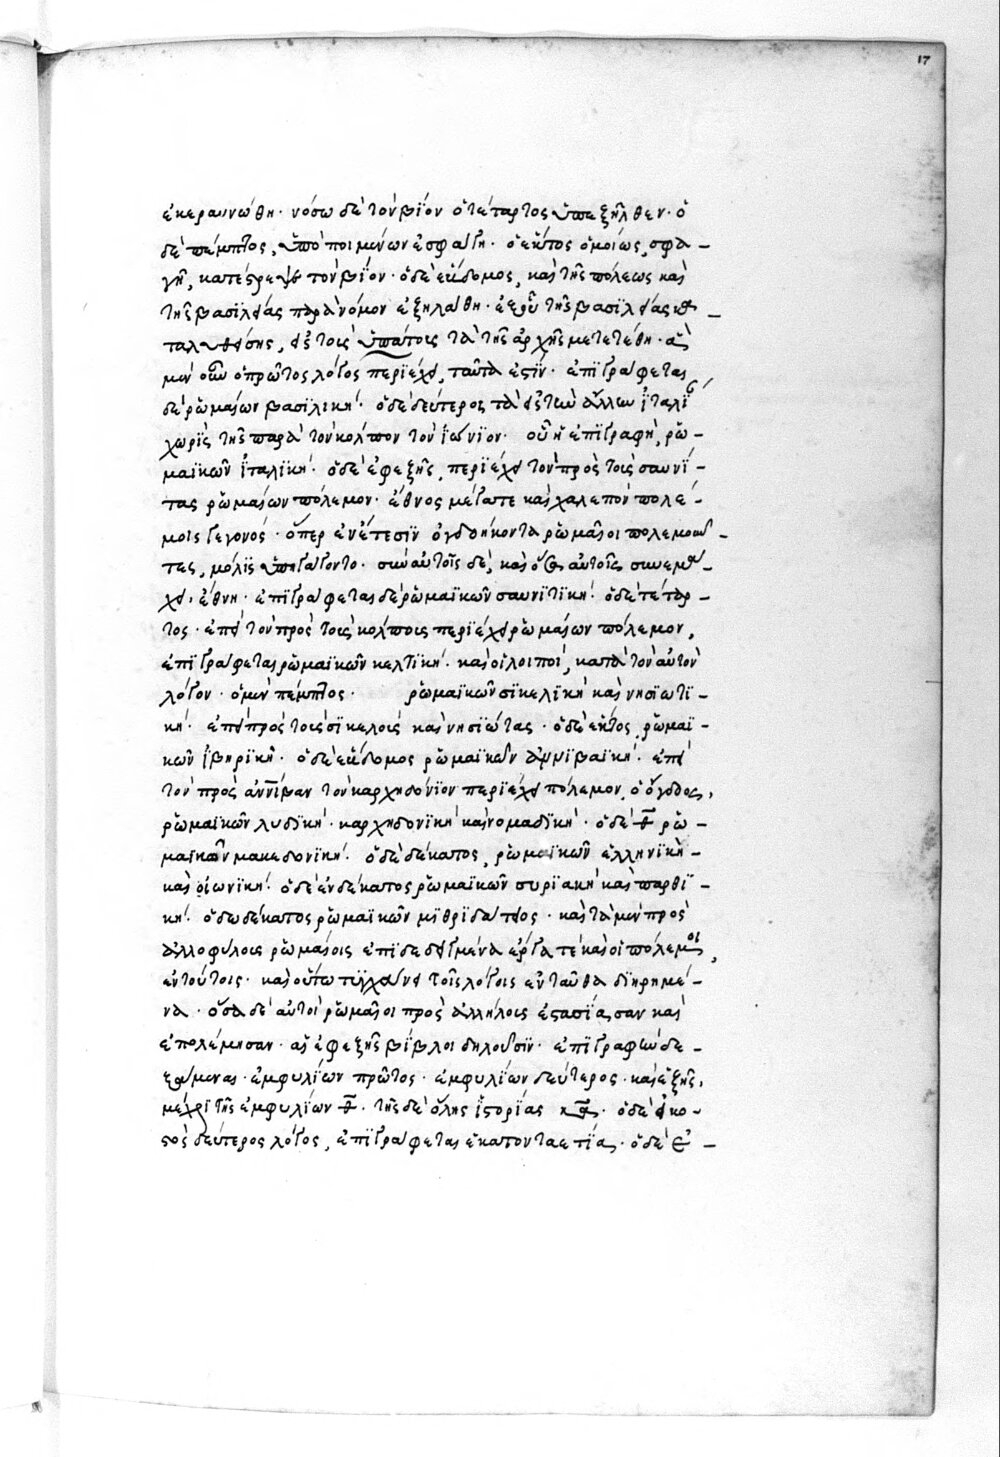 17
ἐκεραυνώθη· νόσω δὲ τὸν βίον ὁ τέταρτος ὑπεξῆλθεν· ὁ
δὲ πέμπτος, ὑπὸ ποιμένων ἐσφάγη· ὁ ἕκτος ὁμοίως, σφα-
γῆ, κατέστρεψε τὸν βίον· ὁ δὲ ἕβδομος, καὶ τῆς πόλεως καὶ
τῆς βασιλείας παρὰ νόμον ἐξηλάθη· ἐξ οὗ τῆς βασιλείας κα-
ταλυθείσης, εἰς τοὺς ὑπάτους τὰ τῆς ἀρχῆς μετετέθη· ἃ
μὲν οὖν ὁ πρῶτος λόγος περιέχει, ταῦτα ἐστίν· ἐπιγράφεται
δὲ ῥωμαίων βασιλική· ὁ δὲ δεύτερος τὰ εἰς τὴν ἄλλην ἰταλί
χωρὶς τῆς παρὰ τὸν κόλπον τὸν ἰώνιον· οὗ ἡ ἐπιγραφή, ῥω-
μαϊκῶν ἰταλική· ὁ δὲ ἐφεξῆς, περιέχει τὸν πρὸς τοὺς σαυνί-
τας ῥωμαίων πόλεμον· ἔθνος μέγα τε καὶ χαλεπὸν πολέ-
μοις γεγονός· ὅπερ ἐν ἔτεσιν ὀγδοήκοντα ῥωμαῖοι πολεμοῦν-
τες, μόλις ὑπηγάγοντο· σὺν αὐτοῖς δὲ, καὶ ὅσα αὐτοῖς συνεμά-
χει, ἔθνη· ἐπιγράφεται δὲ ῥωμαϊκῶν σαυνιτική· ὁ δὲ τέταρ-
τος· ἐπεὶ τὸν πρὸς τοὺς κόλπους περιέχει ῥωμαίων πόλεμον,
ἐπιγράφεται ῥωμαϊκῶν κελτική· καὶ οἱ λοιποί, κατὰ τὸν αὐτὸν
λόγον· ὁ μὲν πέμπτος· ῥωμαϊκῶν σικελικὴ καὶ νησιωτι-
κή· ἐπεὶ πρὸς τοὺς σικελοὺς καὶ νησιώτας· ὁ δὲ ἕκτος, ῥωμαϊ-
κῶν ἰβηρική· ὁ δὲ ἕβδομος ῥωμαϊκῶν ἀννιβαϊκή· ἐπεὶ
τὸν πρὸς ἀννίβαν τὸν καρχηδόνιον περιέχει πόλεμον, ὁ ὄγδοος,
ῥωμαϊκῶν λυδική· καρχηδονικὴ καὶ νομαδική· ὁ δὲ θ ῥω-
μαϊκῶν μακεδονική· ὁ δὲ δέκατος, ῥωμαϊκῶν ἑλληνικὴ-
καὶ ἰωνική· ὁ δὲ ἑνδέκατος ῥωμαϊκῶν συριακὴ καὶ παρθι-
κή· ὁ δωδέκατος ῥωμαϊκῶν μιθριδάτειος· καὶ τὰ μὲν πρὸς
ἀλλοφύλους ῥωμαίοις ἐπιδεδειγμένα ἔργα τε καὶ οἱ πόλεμοι,
ἐν τούτοις· καὶ οὕτω τυγχάνει τοῖς λόγοις ἐνταῦθα διῃρημέ-
να· ὅσα δὲ αὐτοὶ ῥωμαῖοι πρὸς ἀλλήλους ἐστασίασαν καὶ
ἐπολέμησαν· αἱ ἐφεξῆς βίβλοι δηλοῦσιν· ἐπιγραφὴν δε-
ξάμεναι· ἐμφυλίων πρῶτος· ἐμφυλίων δεύτερος· καὶ ἑξῆς,
μέχρι τῆς ἐμφυλίων θ· τῆς δὲ ὅλης ἱστορίας κα· ὁ δὲ εἰκο-
στὸς δεύτερος λόγος, ἐπιγράφεται ἑκατονταετία· ὁ δὲ ἐ-